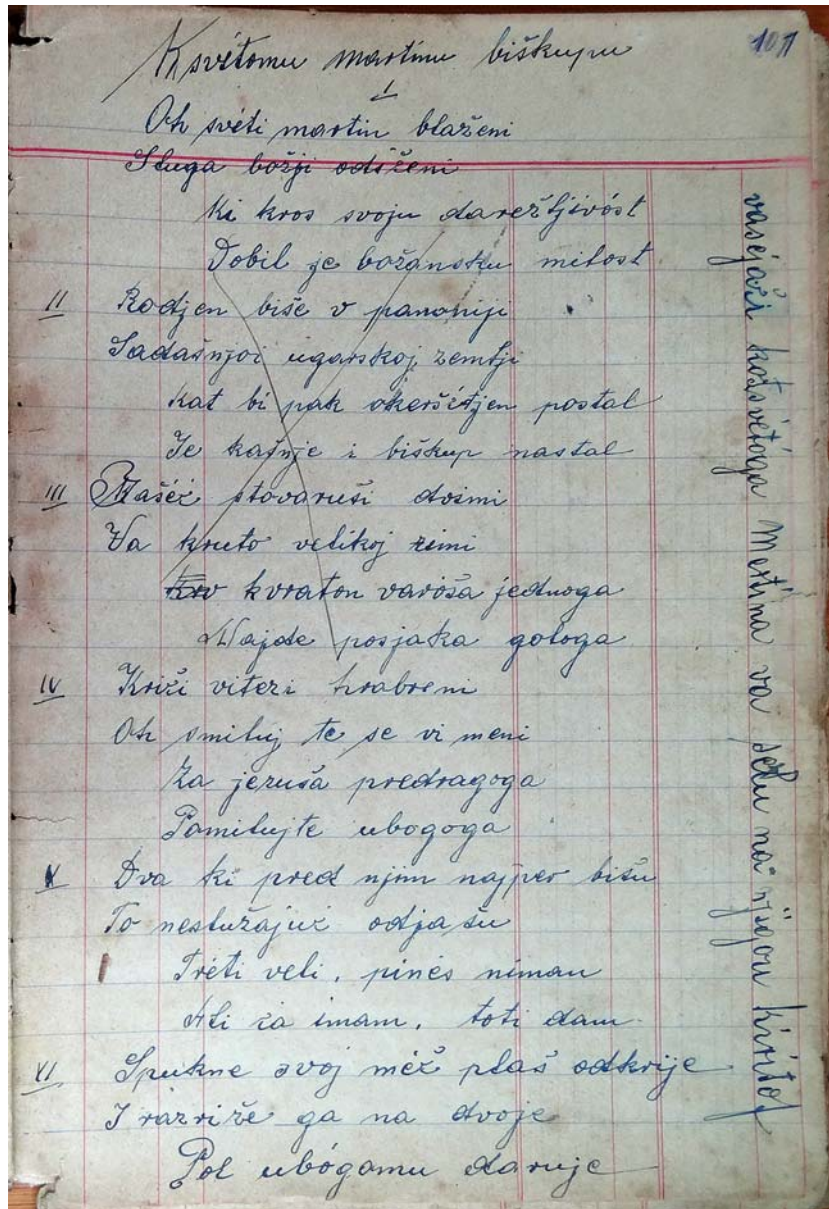 K svétomu martinu biškupu
101
I
Oh svéti martin blaženi
Sluga božji odičeni
Ki kros svoju darežljivóst
Dobil je božansku milost
II Rodjen biše v panoniji
Sadašnjoi ugarskoj zemlji
Kat bi pak okeršćétjen postal
Je kašnje i biškup nastal
III Jašéć stovaruši dvimi
Va kruto velikoj zimi
kvraton varoša jednoga
Najde posjaka gologa
IV Kriči vitezi hrabreni
Oh smiluj te se vi meni
Za jezuša predragoga
Pomilujte ubogoga
V Dva ki pred njim najper bišu
To neslužajuć odjašu
Tréti veli, pinés niman
Ali ča imam, toti dam
VI Spukne svoj méč plaš odkrije
I razriže ga na dvoje
Pol ubógamu daruje
svétoga Mertina va selu na njigou kiritof